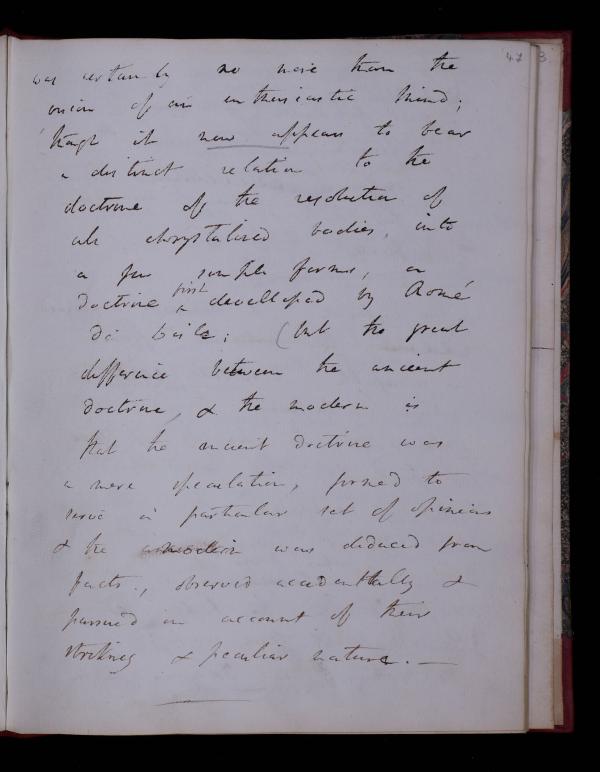 47 3
was certainly no more than the
vision of an enthusiastic mind;
though it now appears to bear
a distinct relation to the
doctrine of the resolution of
all chrystalised bodies, into
a few simple forms, a
doctrine first developed by Romé
de Lisle; (but the great
difference between the ancient
doctrine, & the modern is
that the ancient doctrine was
a mere speculation, formed to
serve a particular set of opinions
& the modern was deduced from
facts, observed accidentally &
pursued on account of their
striking & peculiar nature. —